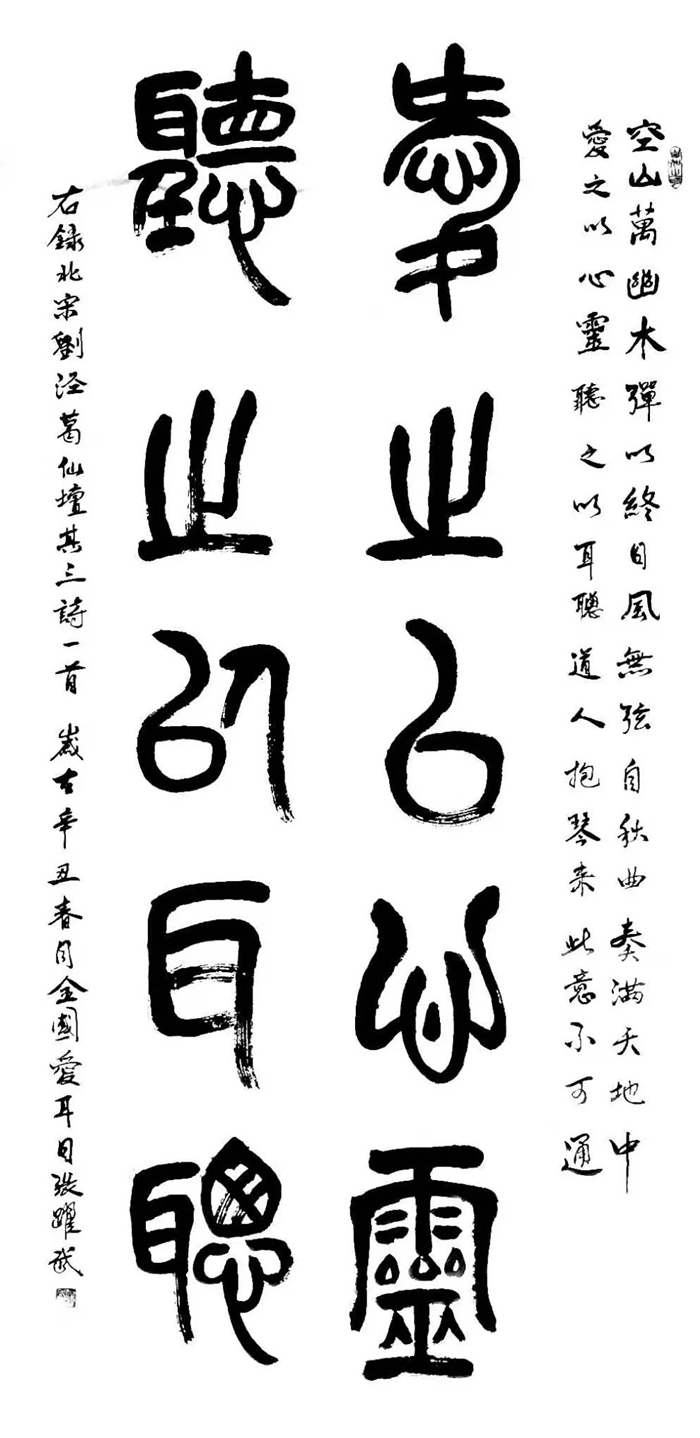 空山萬幽木彈以終日風無弦自秋曲奏滿天地中
愛之以心靈聽之以耳聰道人抱琴来此意不可通
愛之以心靈
聽之以耳聰
右錄北宋劉涇葛仙壇其三詩一首 歲在辛丑春月全國愛耳日張躍武